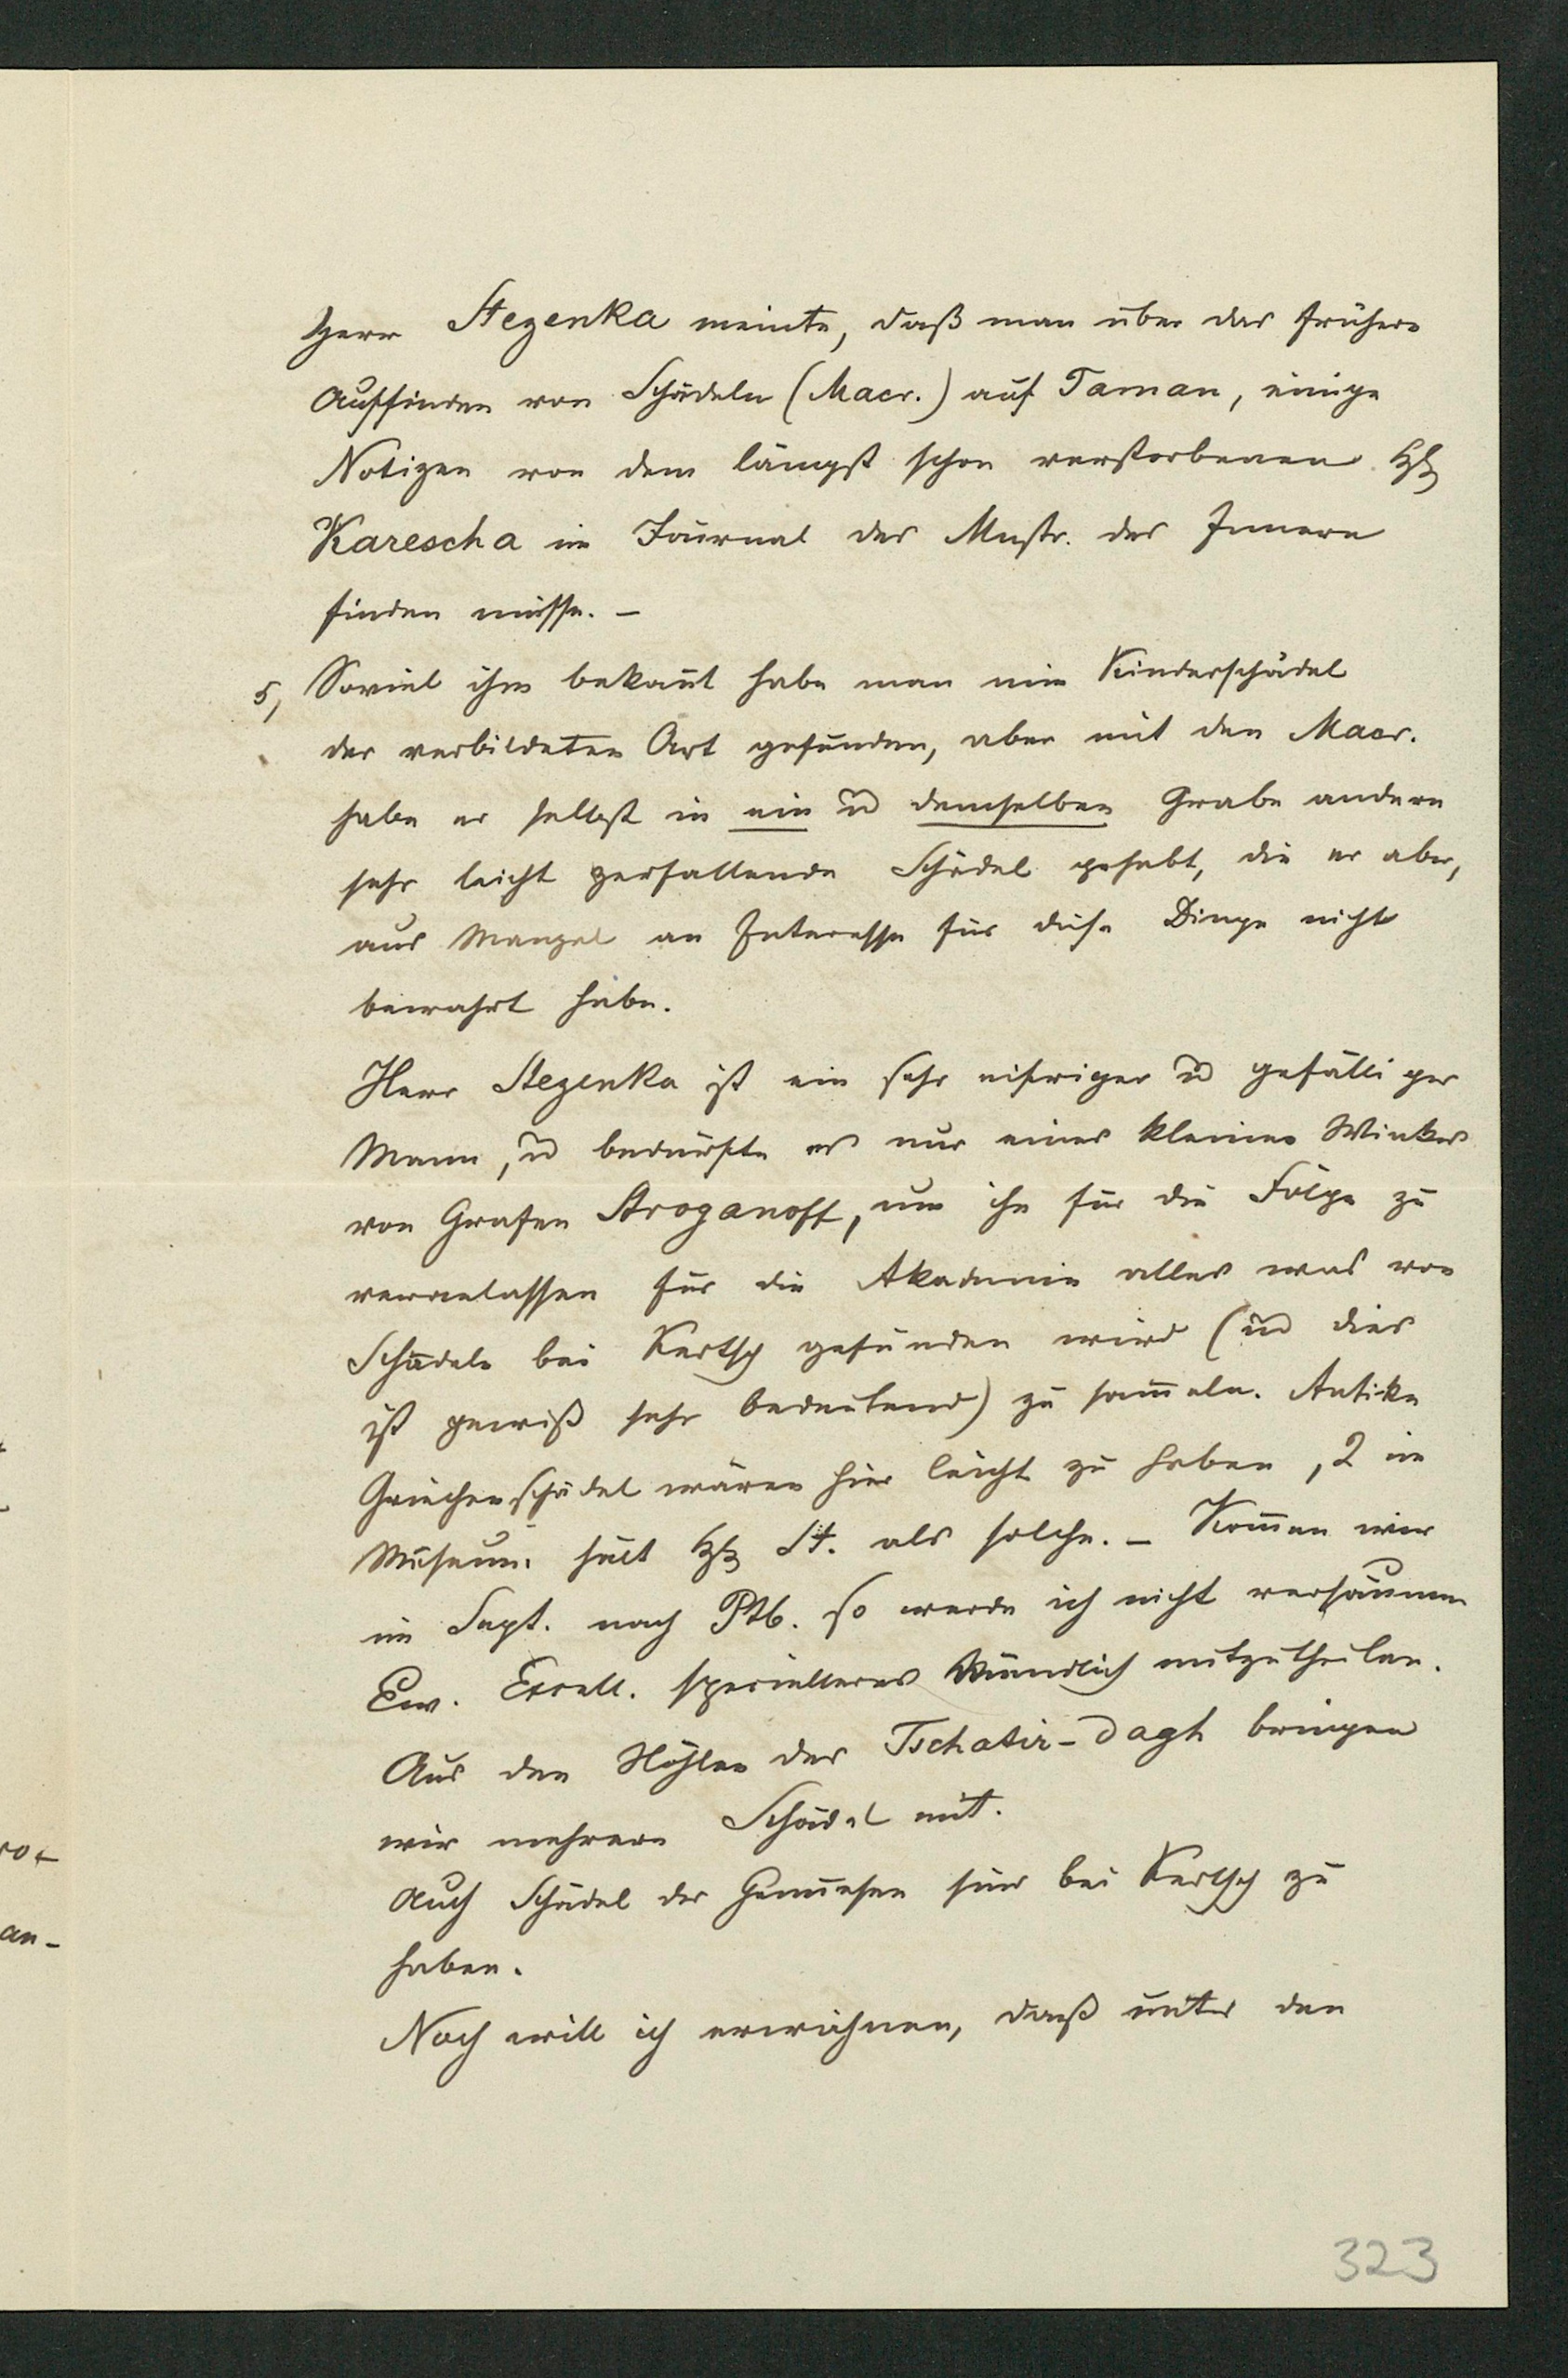 Herr Stezenka meinte, daß man über das frühere
Auffinden von Schädeln (Macr.) auf Taman, einige
Notizen von dem längst schon verstorbenen H
Karescha im Journal des Mnstr. des Innern
finden müsse. –
5, Soviel ihm bekan̄t habe man nie Kinderschädel
der verbildeten Art gefunden, aber mit den Macr.
habe er selbst in ein u demselben Grabe andere
sehr leicht zerfallende Schädel gehabt, die er aber,
aus Mangel an Interesse für diese Dinge nicht
bewahrt habe.
Herr Stezenka ist ein sehr eifriger u gefälliger
Mann, u bedürfte es nur eines kleinen Winkes
von Grafen Stroganoff, um ihn für die Folge zu
veranlassen für die Akademie alles was von
Schädeln bei Kertsch gefunden wird (u dies
ist gewiß sehr bedeutend) zu sam̄eln. Antike
Griechenschädel wären hier leicht zu haben, 2 im
Museum hält H St. als solche. – Kom̄en wir
im Sept. nach Ptb. so werde ich nicht versäumen
Ew. Excell. specielleres Mündlich mitzutheilen.
Aus den Höhlen des Tschatir-Dagh bringen
wir mehrere Schädel mit.
Auch Schädel der Genuesen sind bei Kertsch zu
haben.
Noch will ich erwähnen, daß unter den
323